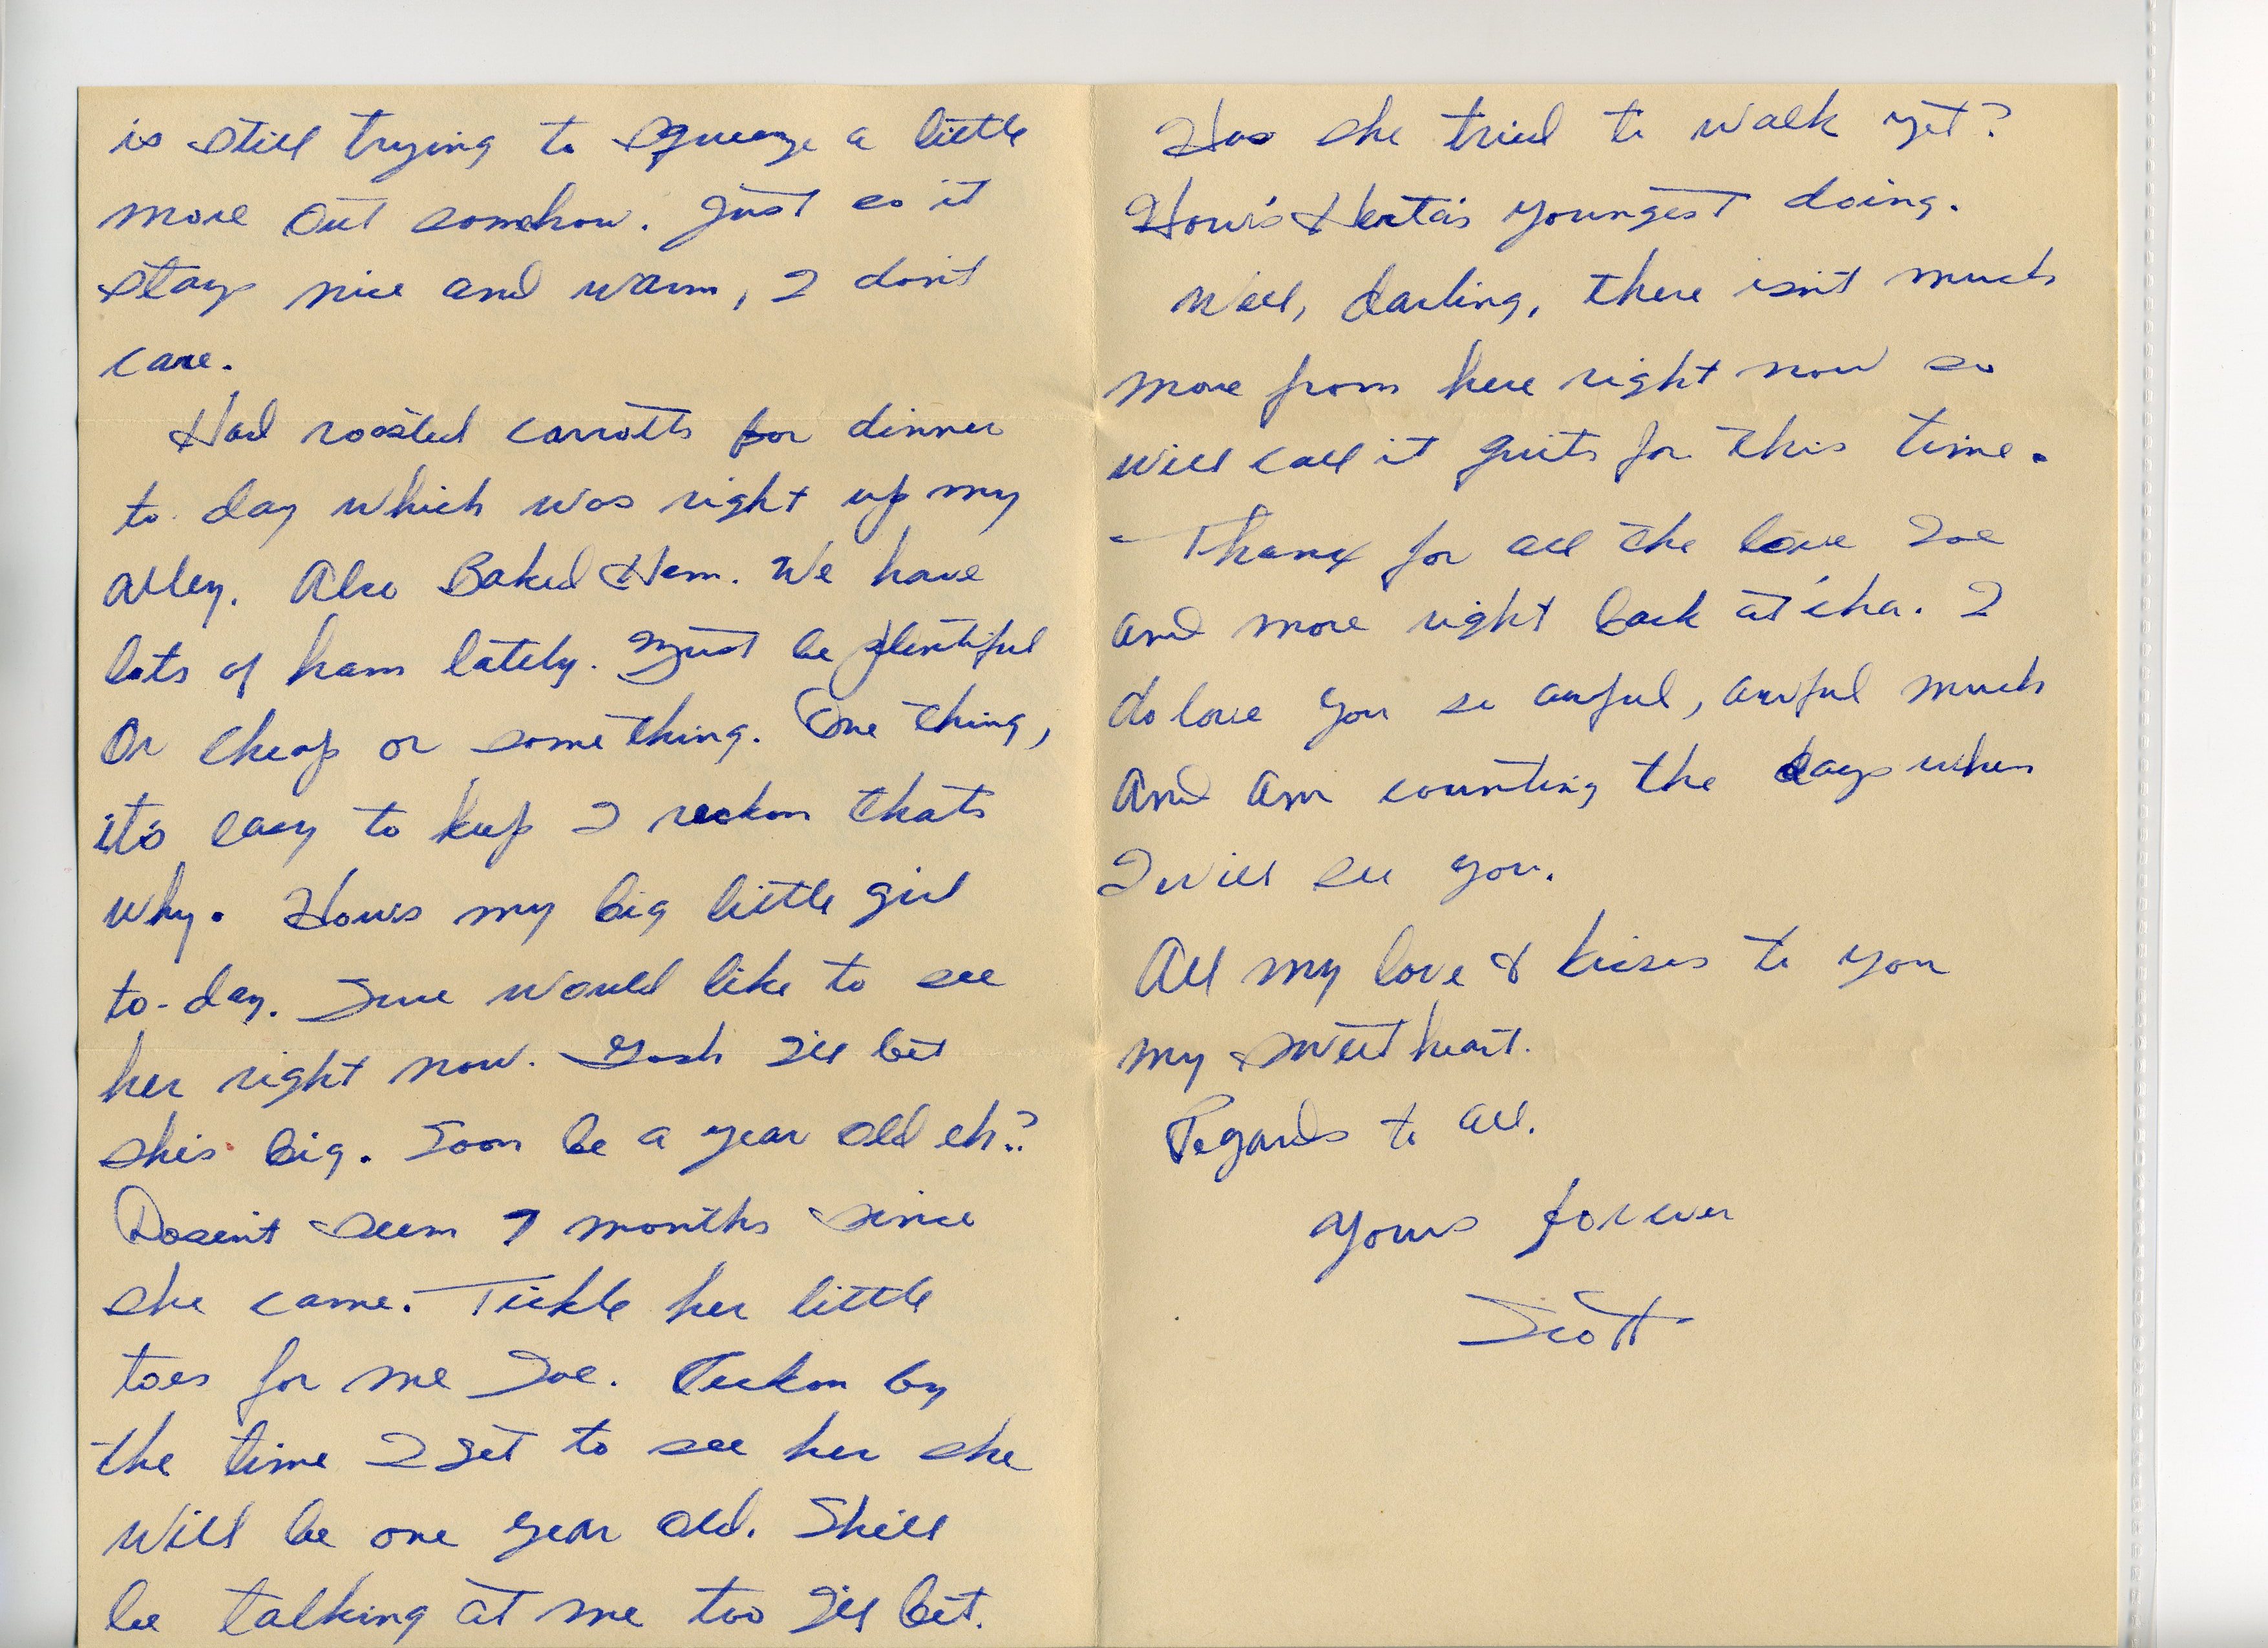 is still trying to squeeze a little
more out somehow. Just so it
stays nice and warm, I don't
care.
Had roasted carrotts for dinner
to-day which was right up my
alley. Also Baked Ham. We have
lots of ham lately. Must be plentiful
Or cheap or something. One thing,
it's easy to keep I reckon thats
why. Hows my big little girl
to-day. Sure would like to see
her right now. Gosh I'll bet
shes big. Soon be a year old eh?
Dosen't seem 7 months since
she came. Tickle her little
toes for me Zoe. Reckon by
the time I get to see her she
will be one year old. Shell
be talking at me too I'll bet.
Has she tried to walk yet?
How's Herta's youngest doing.
Well, darling, there isn't much
more from here right now so
will call it quits for this time.
Thanx for all the love Zoe
and more right back at'cha. I
do love you so awful, awful much
And am counting the days when
I will see you.
All my love & kisses to you
my sweetheart.
Regards to all.
Yours forever
Scott